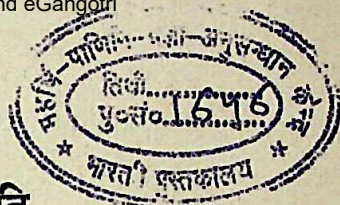 nd eGangotri
महर्षि-पाणिनि-
-अनुसन्धान
तिथी
पु०सं० 1646
* भारती पुस्तकालय *
ति